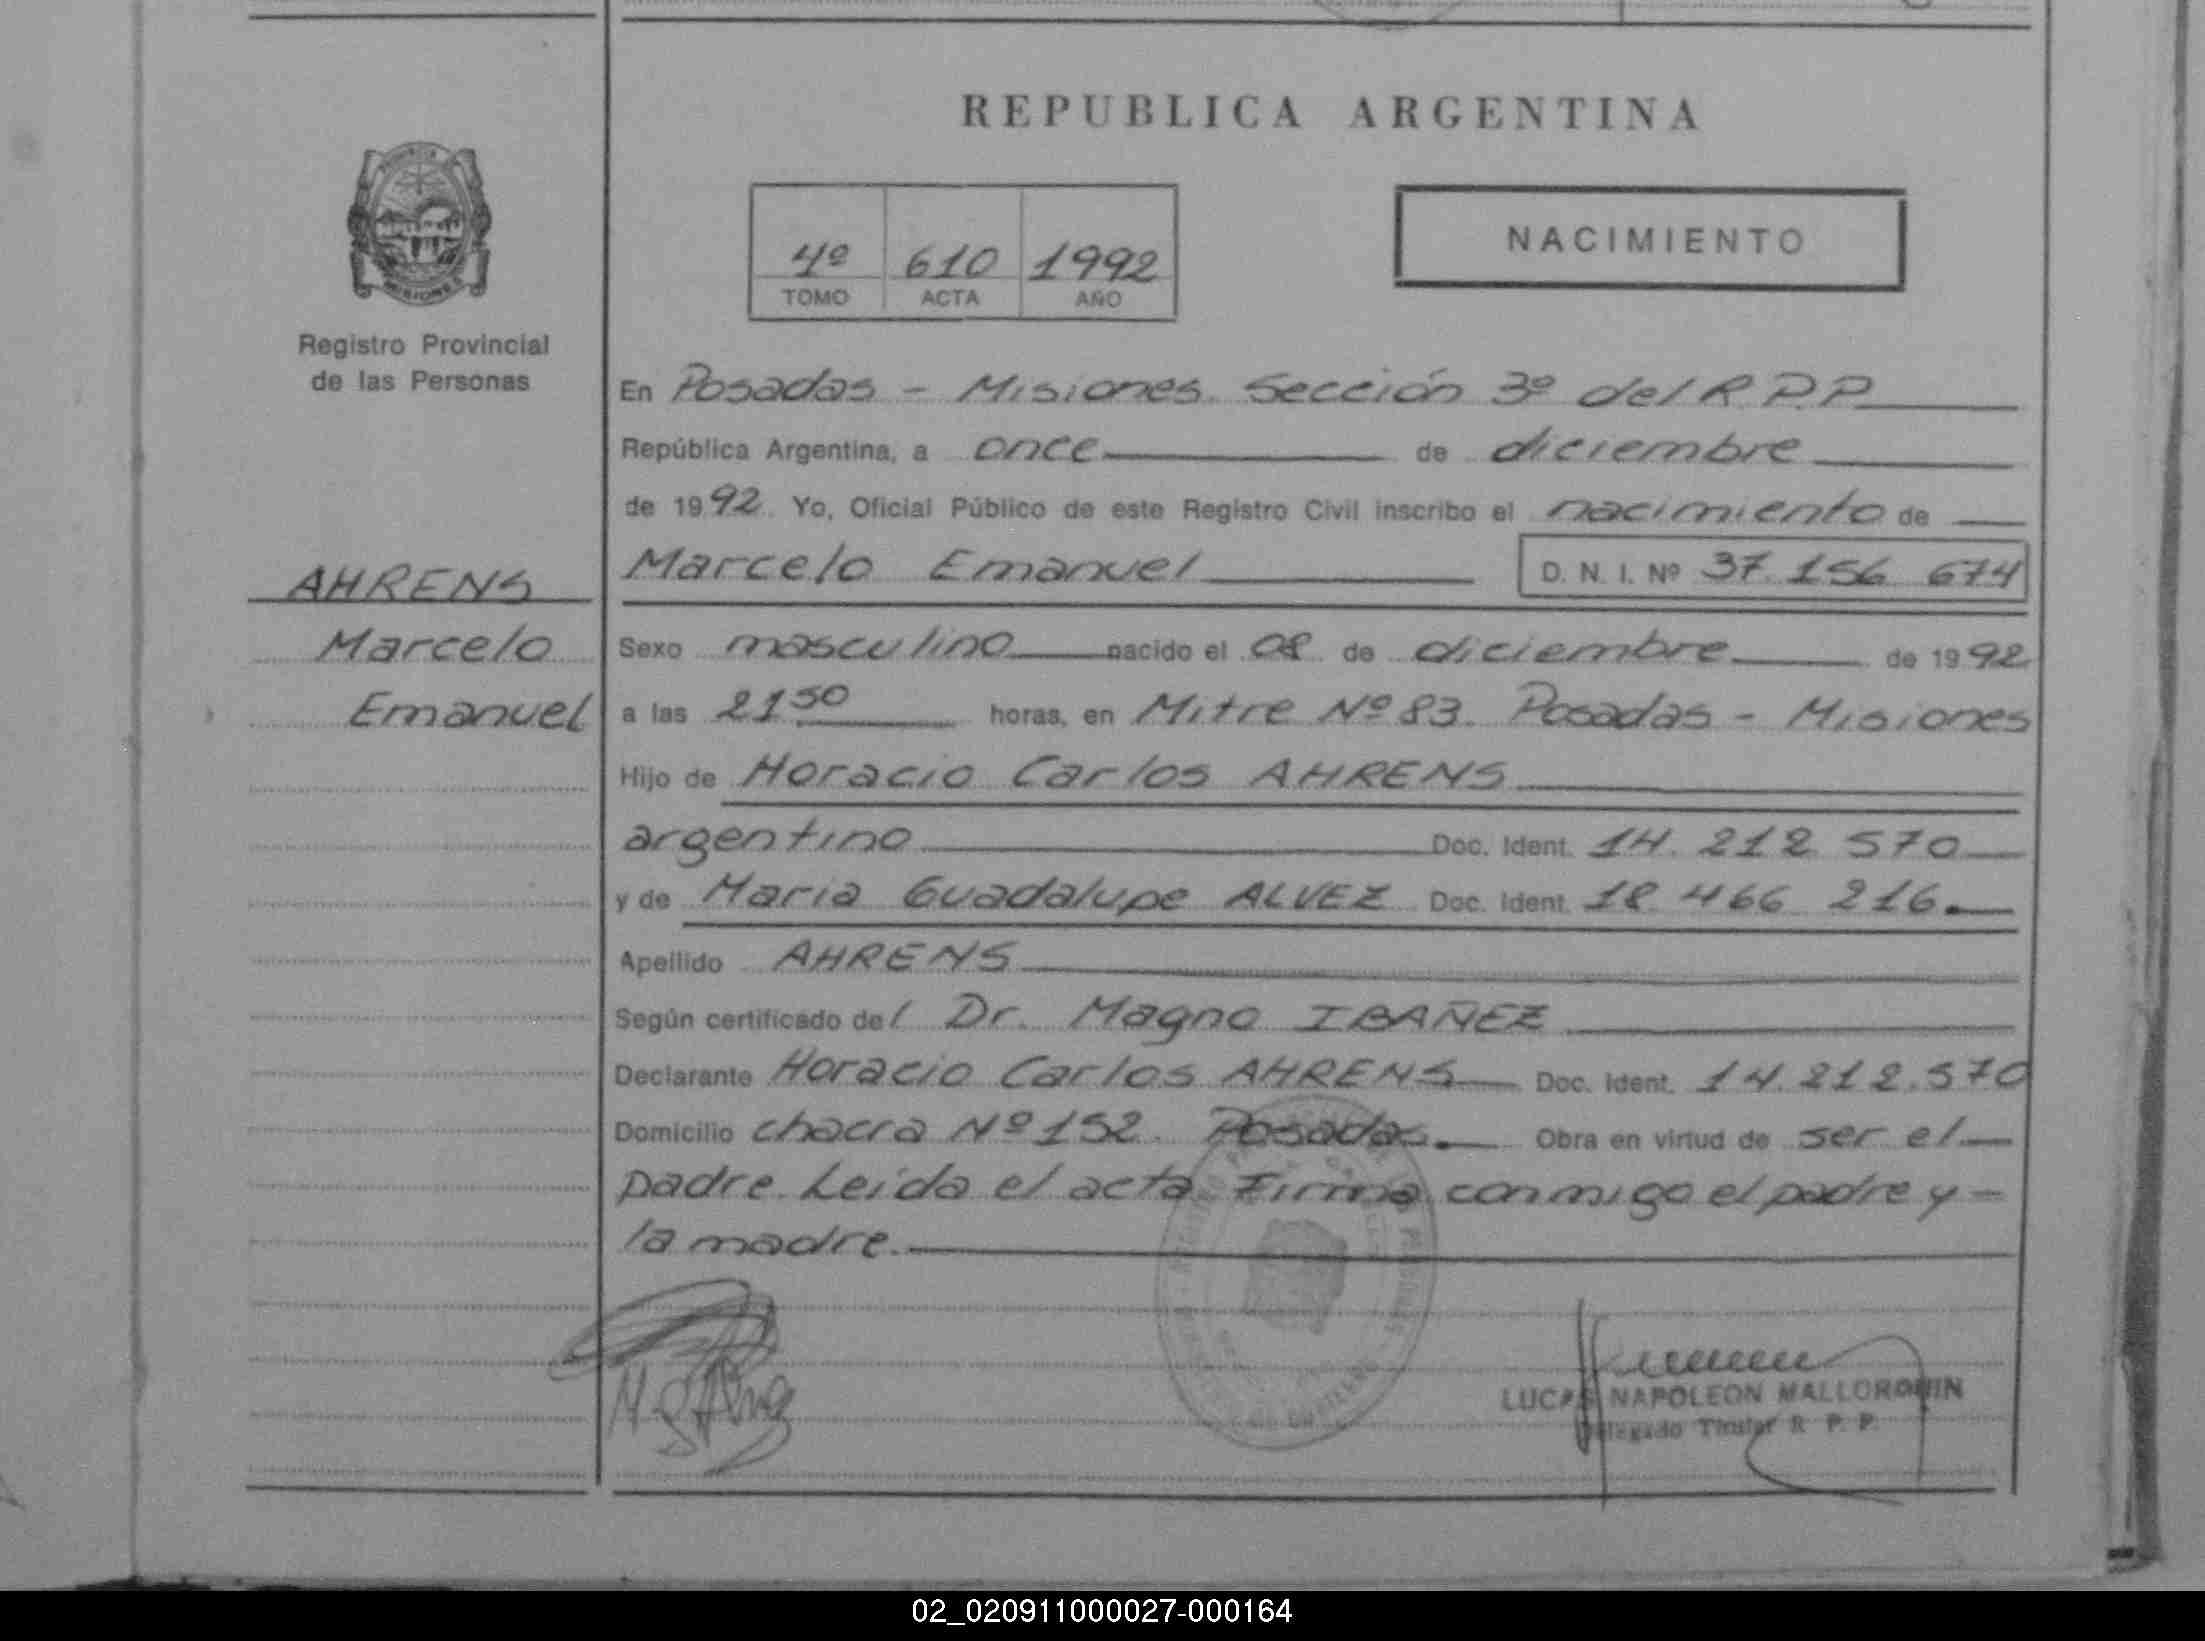 REPUBLICA ARGENTINA
PROVINCIA
MISIONES
Registro Provincial
de las Personas
4º 610 1992
TOMO ACTA AÑO
NACIMIENTO
En Posadas - Misiones. Sección 3º del R.P.P.
República Argentina, a once de diciembre
de 1992. Yo, Oficial Público de este Registro Civil inscribo el nacimiento de
Marcelo Emanuel D. N. I. Nº 37.156.674
AHRENS
Marcelo
Emanuel
Sexo masculino nacido el 08 de diciembre de 1992
a las 21 50 horas, en Mitre Nº 83. Posadas - Misiones
Hijo de Horacio Carlos AHRENS
argentino Doc. Ident. 14.212.570
y de Maria Guadalupe ALVEZ Doc. Ident. 18.466.216.
Apellido AHRENS
Según certificado del Dr. Magno IBAÑEZ
Declarante Horacio Carlos AHRENS Doc. Ident. 14.212.570
Domicilio chacra Nº 152. Posadas. Obra en virtud de ser el
padre. Leida el acta Firma conmigo el padre y -
la madre.
LUCAS NAPOLEON MALLORQUIN
Delegado Titular R. P. P.
02_020911000027-000164